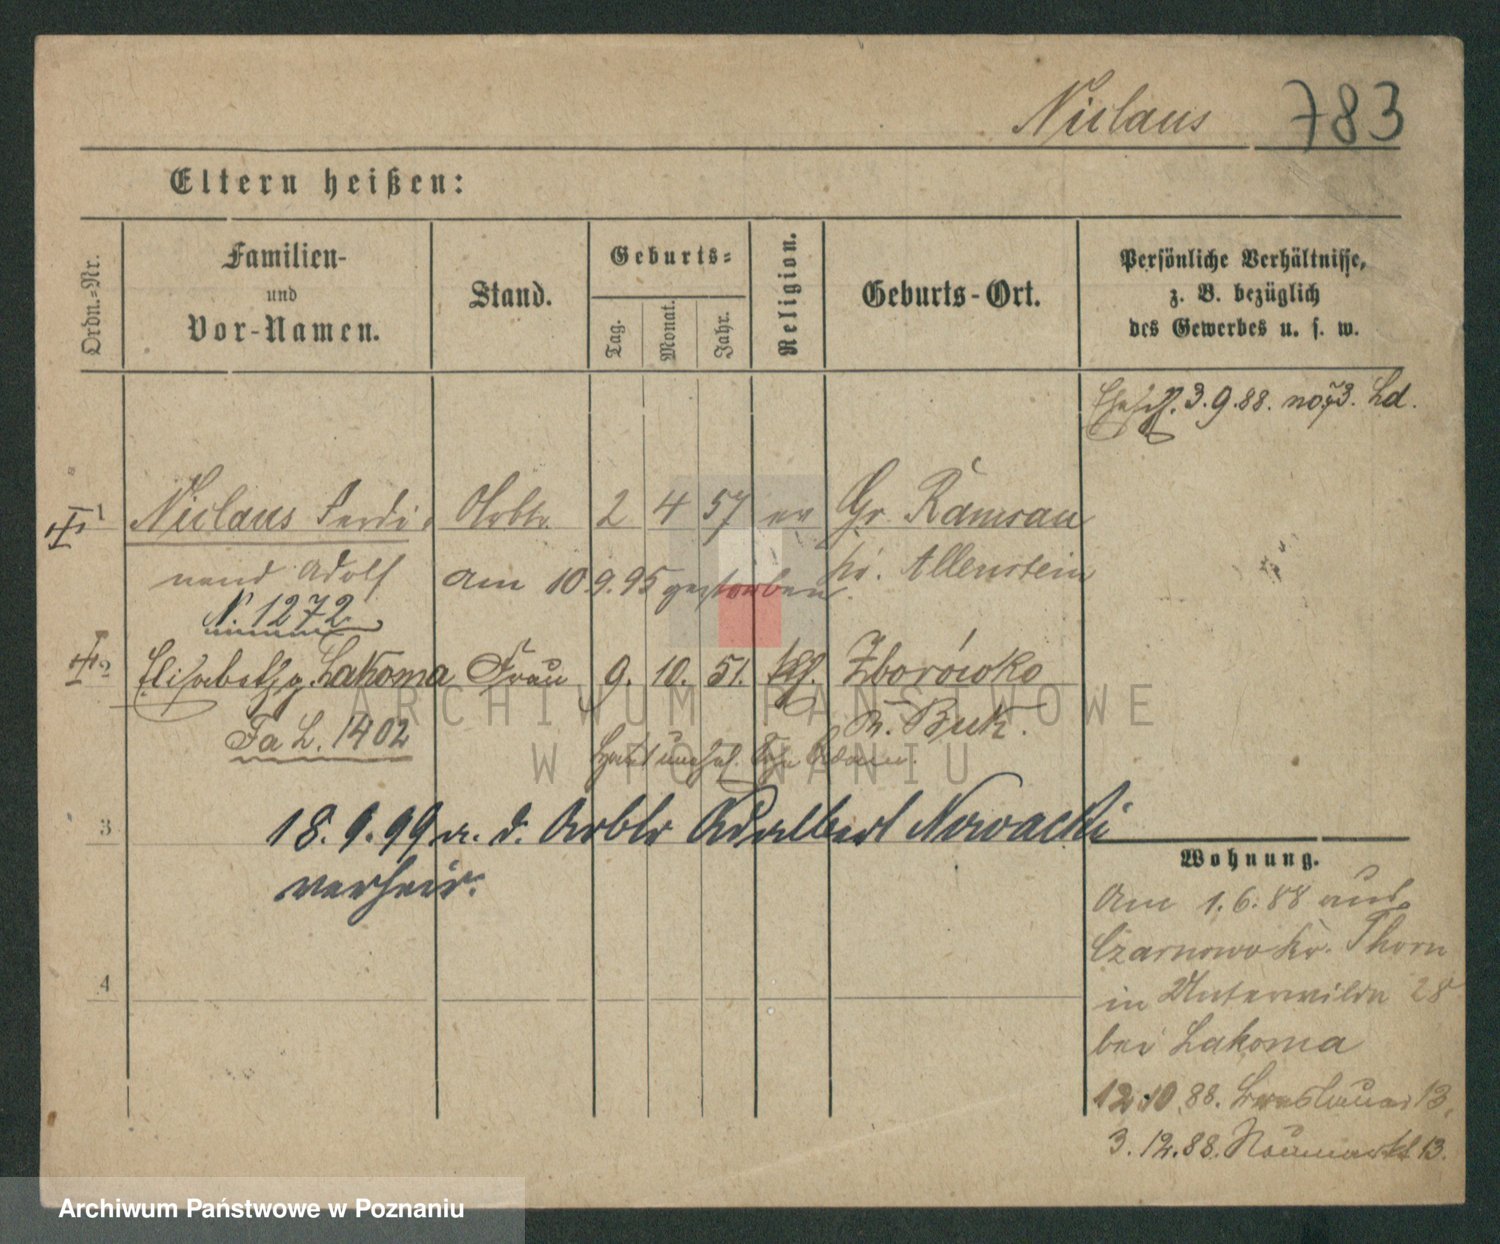 Niclaus 783
Eltern heißen:
Ordn.-Nr.
Familien-
und
Vor-Namen.
Stand.
Geburts-
Tag.
Monat.
Jahr.
Religion.
Geburts-Ort.
Persönliche Verhältnisse,
z. B. bezüglich
des Gewerbes u. s. w.
3.9.88. Ld.
1 Niclaus Ferdi- Arbtr. 2 4 57 ev Gr Ramsau
nand Adolf am 10 9.95 gestorben. Kr. Allenstein
N. 1272
2 Elisabeth g. Lakoma Frau 9. 10. 51. kth. Zborówko
Fa L. 1402 Kr. Buk.
3 18.9.99 m. d. Arbtr Adalbert Nowacki
verheir.
4
Wohnung.
Am 1.6.88 aus
Czarnowo Kr. Thorn
in Unterwilda 28
bei Lakoma
12.10.88. Breslauer 13,
3.12.88. Neumarkt 13.
ARCHIWUM PAŃSTWOWE
W POZNANIU
Archiwum Państwowe w Poznaniu